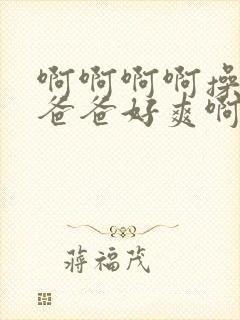 啊啊啊啊操
爸爸好爽啊
蒋福茂